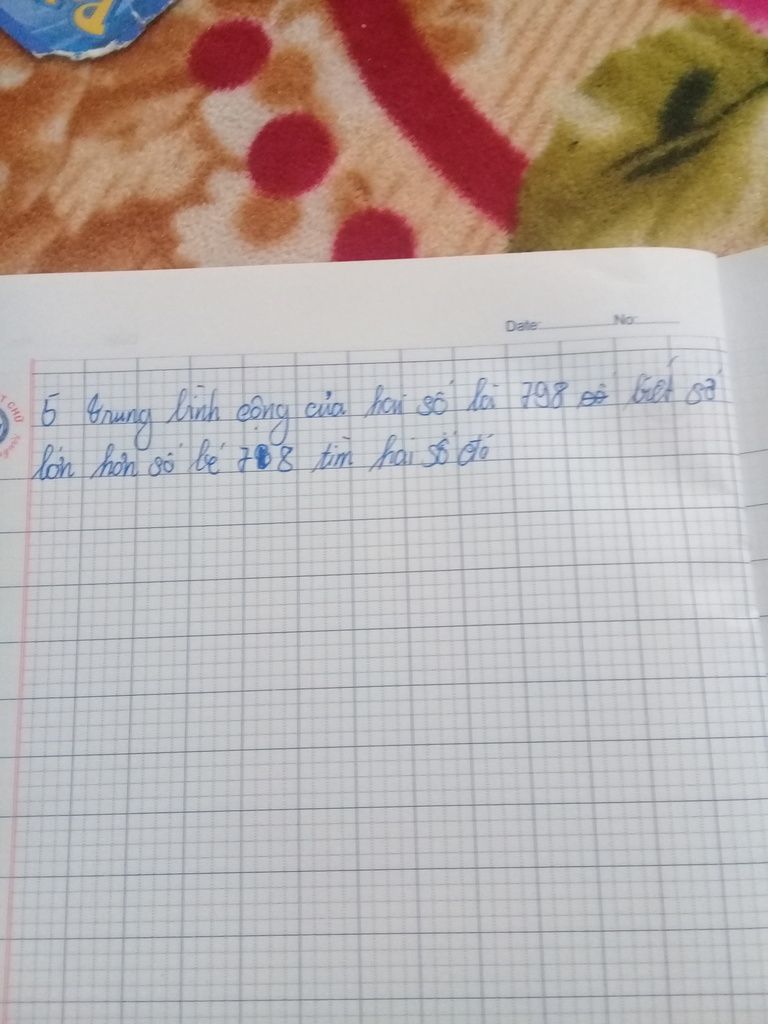 Date: No:
5 trung bình cộng của hai số là 798 số biết số
lớn hơn số bé 718 tìm hai số đó